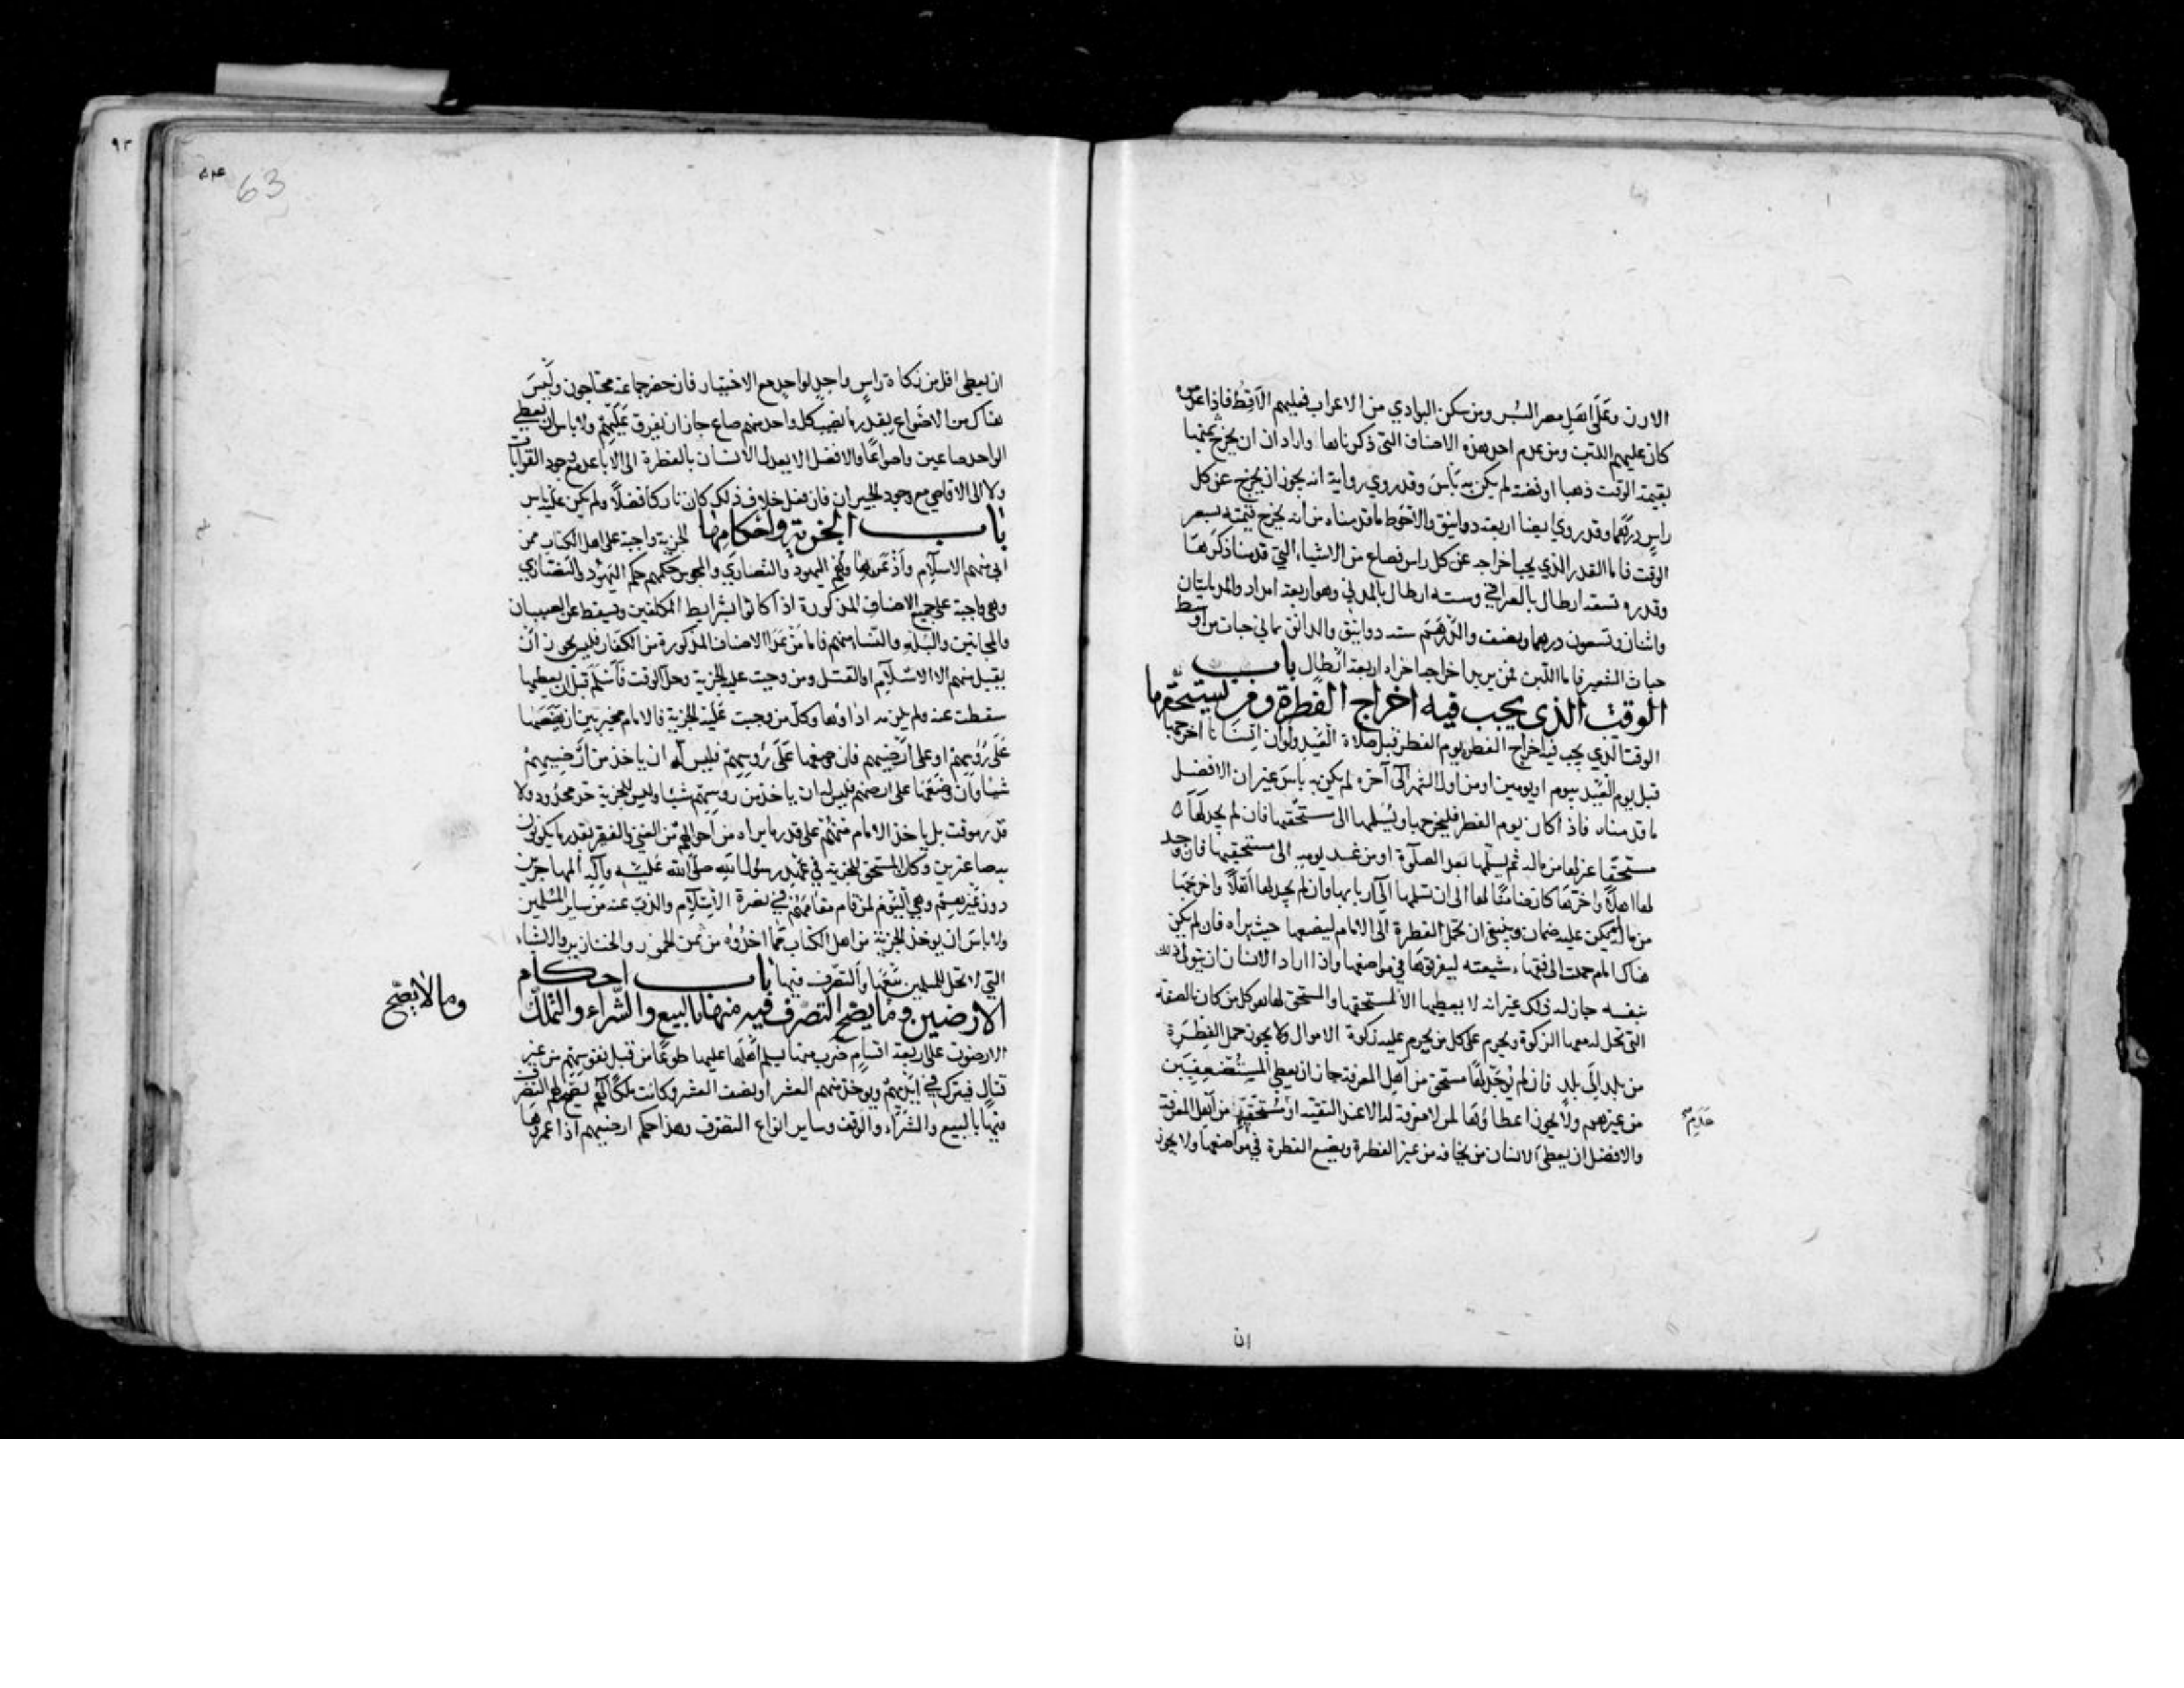 الارز وعلى اهل مصر البُر ومن سكن البوادي من الاعراب فعليهم الاَقِط فاذا عدموه
كان عليهم اللبن ومن عدم احد هذه الاصناف التي ذكرناها واراد ان يخرج ثمنها
بقيمة الوقت ذهبا او فضة لم يكن به بأس وقد روي رواية انه يجوز ان يخرج عن كل
راسٍ درهما وقد روي ايضا اربعة دوانيق والاحوط ما قدمناه من انه يخرج قيمته بسعر
الوقت فاما القدر الذي يجب اخراجه عن كل راس فصاع من الاشياء التي قدمنا ذكرها
وقدره تسعة ارطال بالعراقي وستة ارطال بالمدني وهو اربعة امداد والمد مايتان
واثنان وتسعون درهما ونصف والدرهم ستة دوانيق والدانق ثماني حبات من اوسط
حبات الشعير فاما اللبن فمن يريد اخراجه اجزاه اربعة ارطال باب
الوقت الذي يجب فيه اخراج الفطرة ومن يستحقها
الوقت الذي يجب فيه اخراج الفطرة يوم الفطر قبل صلاة العيد ولو ان انسانا اخرجها
قبل يوم العيد بيوم او يومين او من اول الشهر الى آخره لم يكن به باس غير ان الافضل
ما قدمناه فاذا كان يوم الفطر فليخرجها ويسلمها الى مستحقيها فان لم يجد لها
مستحقا عزلها من ماله ثم يسلمها بعد الصلاة او من غد يومه الى مستحقيها فان وجد
لها اهلًا واخرها كان ضامنًا لها الى ان تسلمها الى اربابها وان لم يجد لها اهلًا واخرجها
من ماله لم يكن عليه ضمان وينبغي ان تحمل الفطرة الى الامام ليضعها حيث يراه فان لم يكن
هناك امام حملت الى فقهاء شيعته ليفرقوها في مواضعها واذا اراد الانسان ان يتولى ذلك
بنفسه جاز له ذلك غير انه لا يعطيها الا لمستحقها والمستحق لها هو كل من كان بالصفة
التي تحل له معها الزكوة وتحرم على كل من يحرم عليه زكوة الاموال ولا يجوز حمل الفطرة
من بلد الى بلد فان لم يوجد لها مستحق من اهل المعرفة جاز ان يعطي المستضعفين
من غيرهم ولا يجوز اعطاؤها لمن لا معرفة له الا عند التقية او مستحقيها من اهل المعرفة
والافضل ان يعطي الانسان من يخافه من غير الفطرة ويضع الفطرة في مواضعها ولا يجوز
ان
63
ان يعطي اقل من زكاة راسٍ واحدٍ لواحدٍ مع الاختيار فان حضر جماعة محتاجون وليس
هناك من الاصواع بقدر ما يصيب كل واحد منهم صاع جاز ان يفرق عليهم ولا باس ان يعطي
الواحد صاعين واصواعًا والافضل الا يعدل الانسان بالفطرة الى الاباعد مع وجود القرابات
ولا الى الاقاصي مع وجود الجيران فان فعل خلاف ذلك كان تاركا فضلًا ولم يكن عليه باس
باب الجزية واحكامها الجزية واجبة على اهل الكتاب ممن
ابى منهم الاسلام واذعن بها وهم اليهود والنصارى والمجوس حكمهم حكم اليهود والنصارى
وهي واجبة على جميع الاصناف المذكورة اذا كانوا بشرايط المكلفين وتسقط عن الصبيان
والمجانين والبُله والنساء منهم فاما من عدا الاصناف المذكورة من الكفار فليس يجوز ان
يقبل منهم الا الاسلام او القتل ومن وجبت عليه الجزية وحل الوقت فاسلم قبل ان يعطيها
سقطت عنه ولم يلزمه اداؤها وكل من وجبت عليه الجزية فالامام مخير بين ان يضعها
على رؤسهم او على ارضيهم فان وضعها على رؤسهم فليس له ان ياخذ من ارضيهم
شيئا وان وضعها على ارضهم فليس له ان ياخذ من روسهم شيئا وليس للجزية حد محدود ولا
قدر موقت بل ياخذ الامام منهم على قدر ما يراه من احوالهم من الغنى والفقر بقدر ما يكونون
به صاغرين وكان المستحق للجزية في عهد رسول الله صلى الله عليه وآله المهاجرين
دون غيرهم وهي اليوم لمن قام مقامهم في نصرة الاسلام والذب عنه من ساير المسلمين
ولا باس ان يوخذ الجزية من اهل الكتاب مما اخذوه من ثمن الخمور والخنازير والاشياء
التي لا تحل للمسلمين بيعها والتصرف فيها باب احكام
الارضين وما يصح التصرف فيه منها بالبيع والشراء والتملك
وما لا يصح
الارضون على اربعة اقسام ضرب منها يسلم اهلها عليها طوعًا من قبل نفوسهم من غير
قتال فيترك في ايديهم ويوخذ منهم العشر او نصف العشر وكانت ملكًا لهم يصح لهم التصرف
فيها بالبيع والشراء والوقف وساير انواع التصرف وهذا حكم ارضيهم اذا عمروها